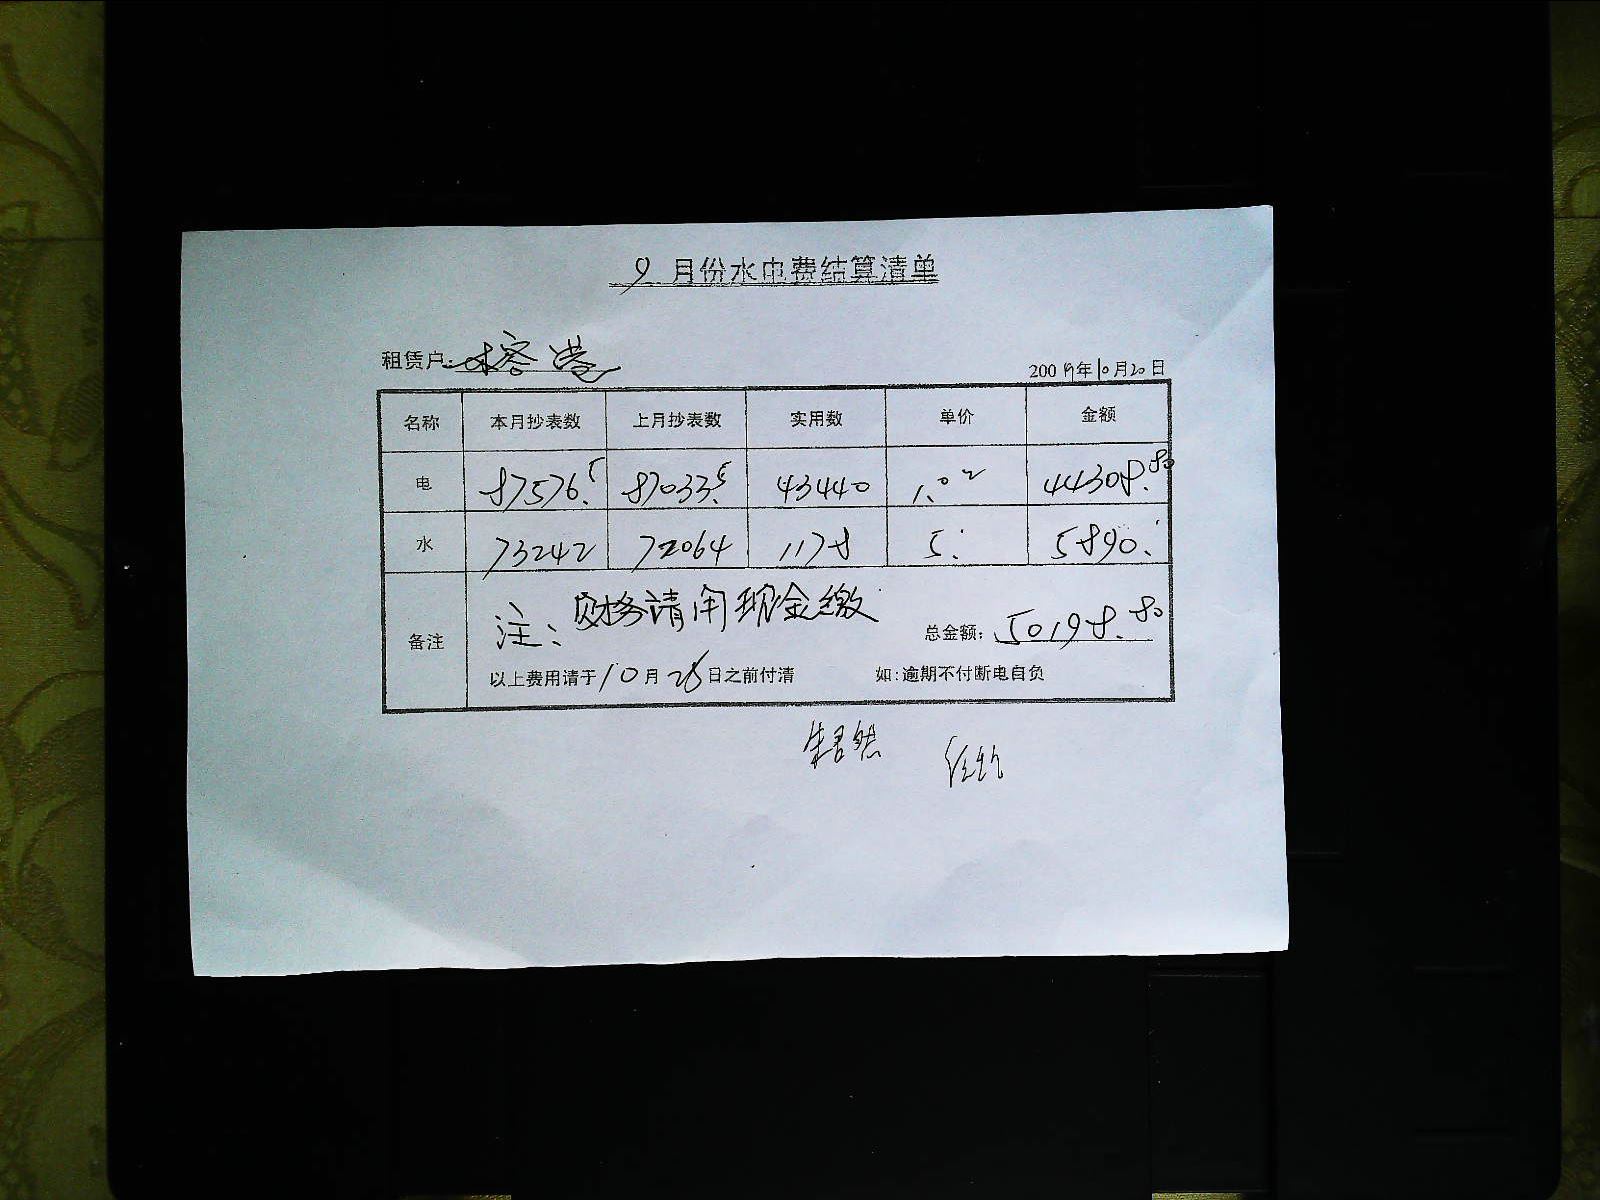 9 月份水电费结算清单
租赁户: 榕港 2009年10月20日
名称 本月抄表数 上月抄表数 实用数 单价 金额
电 87576.5 87033.5 43440 1.02 44308.80
水 73242 72064 1178 5. 5890.
备注 注: 财务请用现金缴
总金额: 50198.80
以上费用请于10月28日之前付清 如:逾期不付断电自负